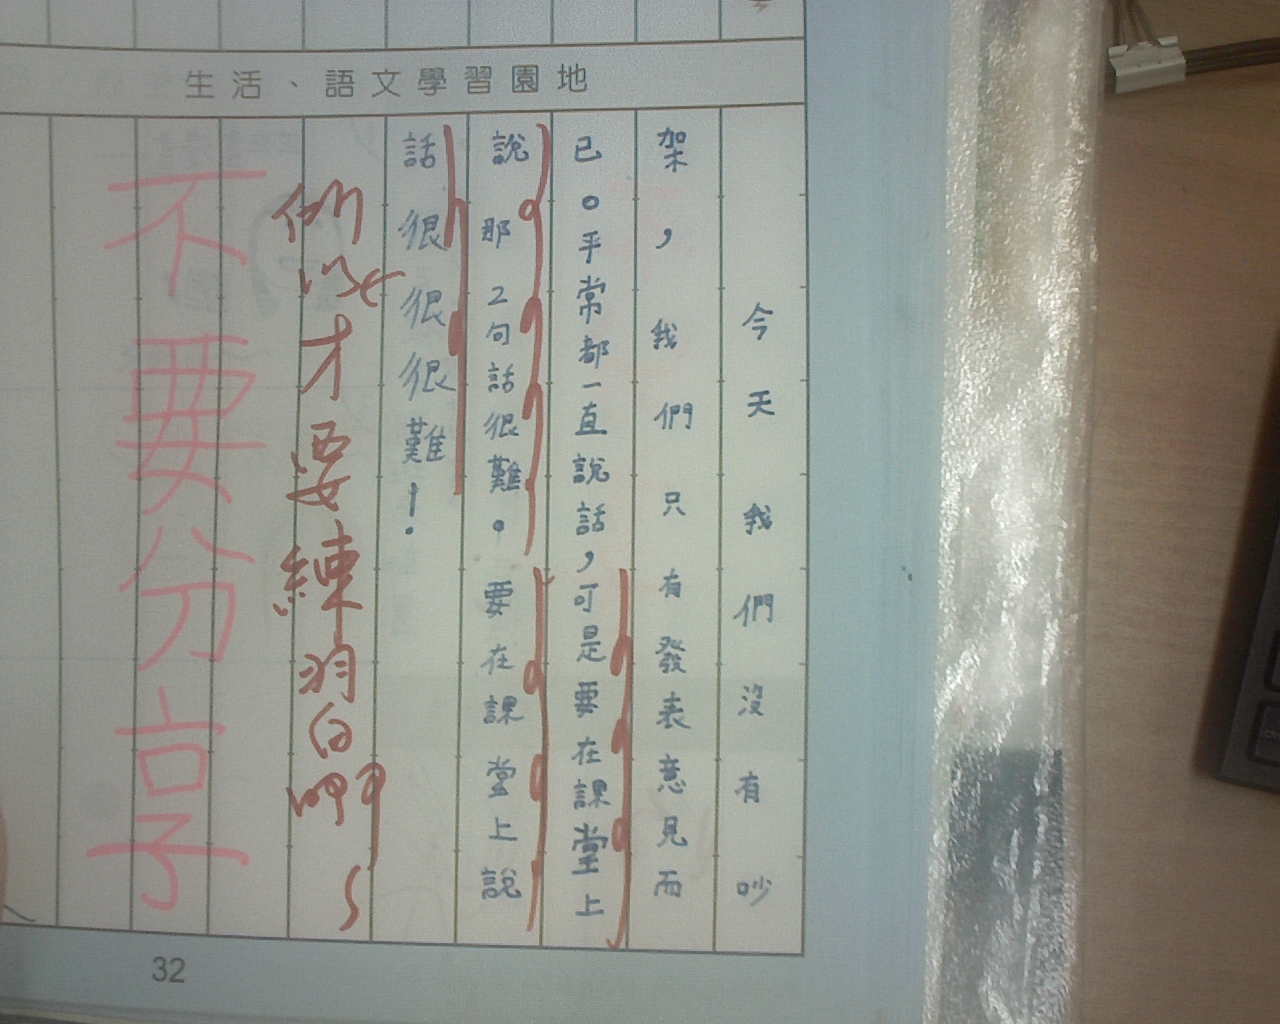 生活、語文學習園地
今天我們沒有吵
架，我們只有發表意見而
已。平常都一直說話，可是要在課堂上
說那2句話很難。要在課堂上說
話很很很難！
所以才要練習白啊
不要分享
32